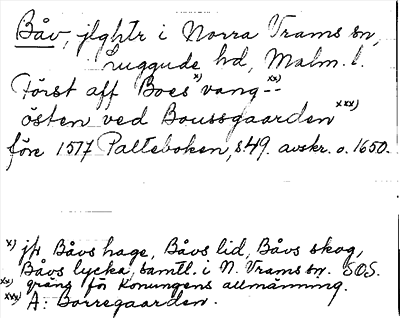 Båv, jlghtr i Norra Vrams sn,
Luggude hd, Malm. l.
Först aff Boes x) vang -- xx)
östen ved Boussgaarden xxx)
före 1517 Palteboken, s49. avskr. o. 1650.
x) jfr Båvs hage, Båvs lid, Båvs skog,
Båvs lycka, samtl. i N. Vrams sn. SOS.
xx) gräns för Konungens allmänning.
xxx) A: Borregaarden.